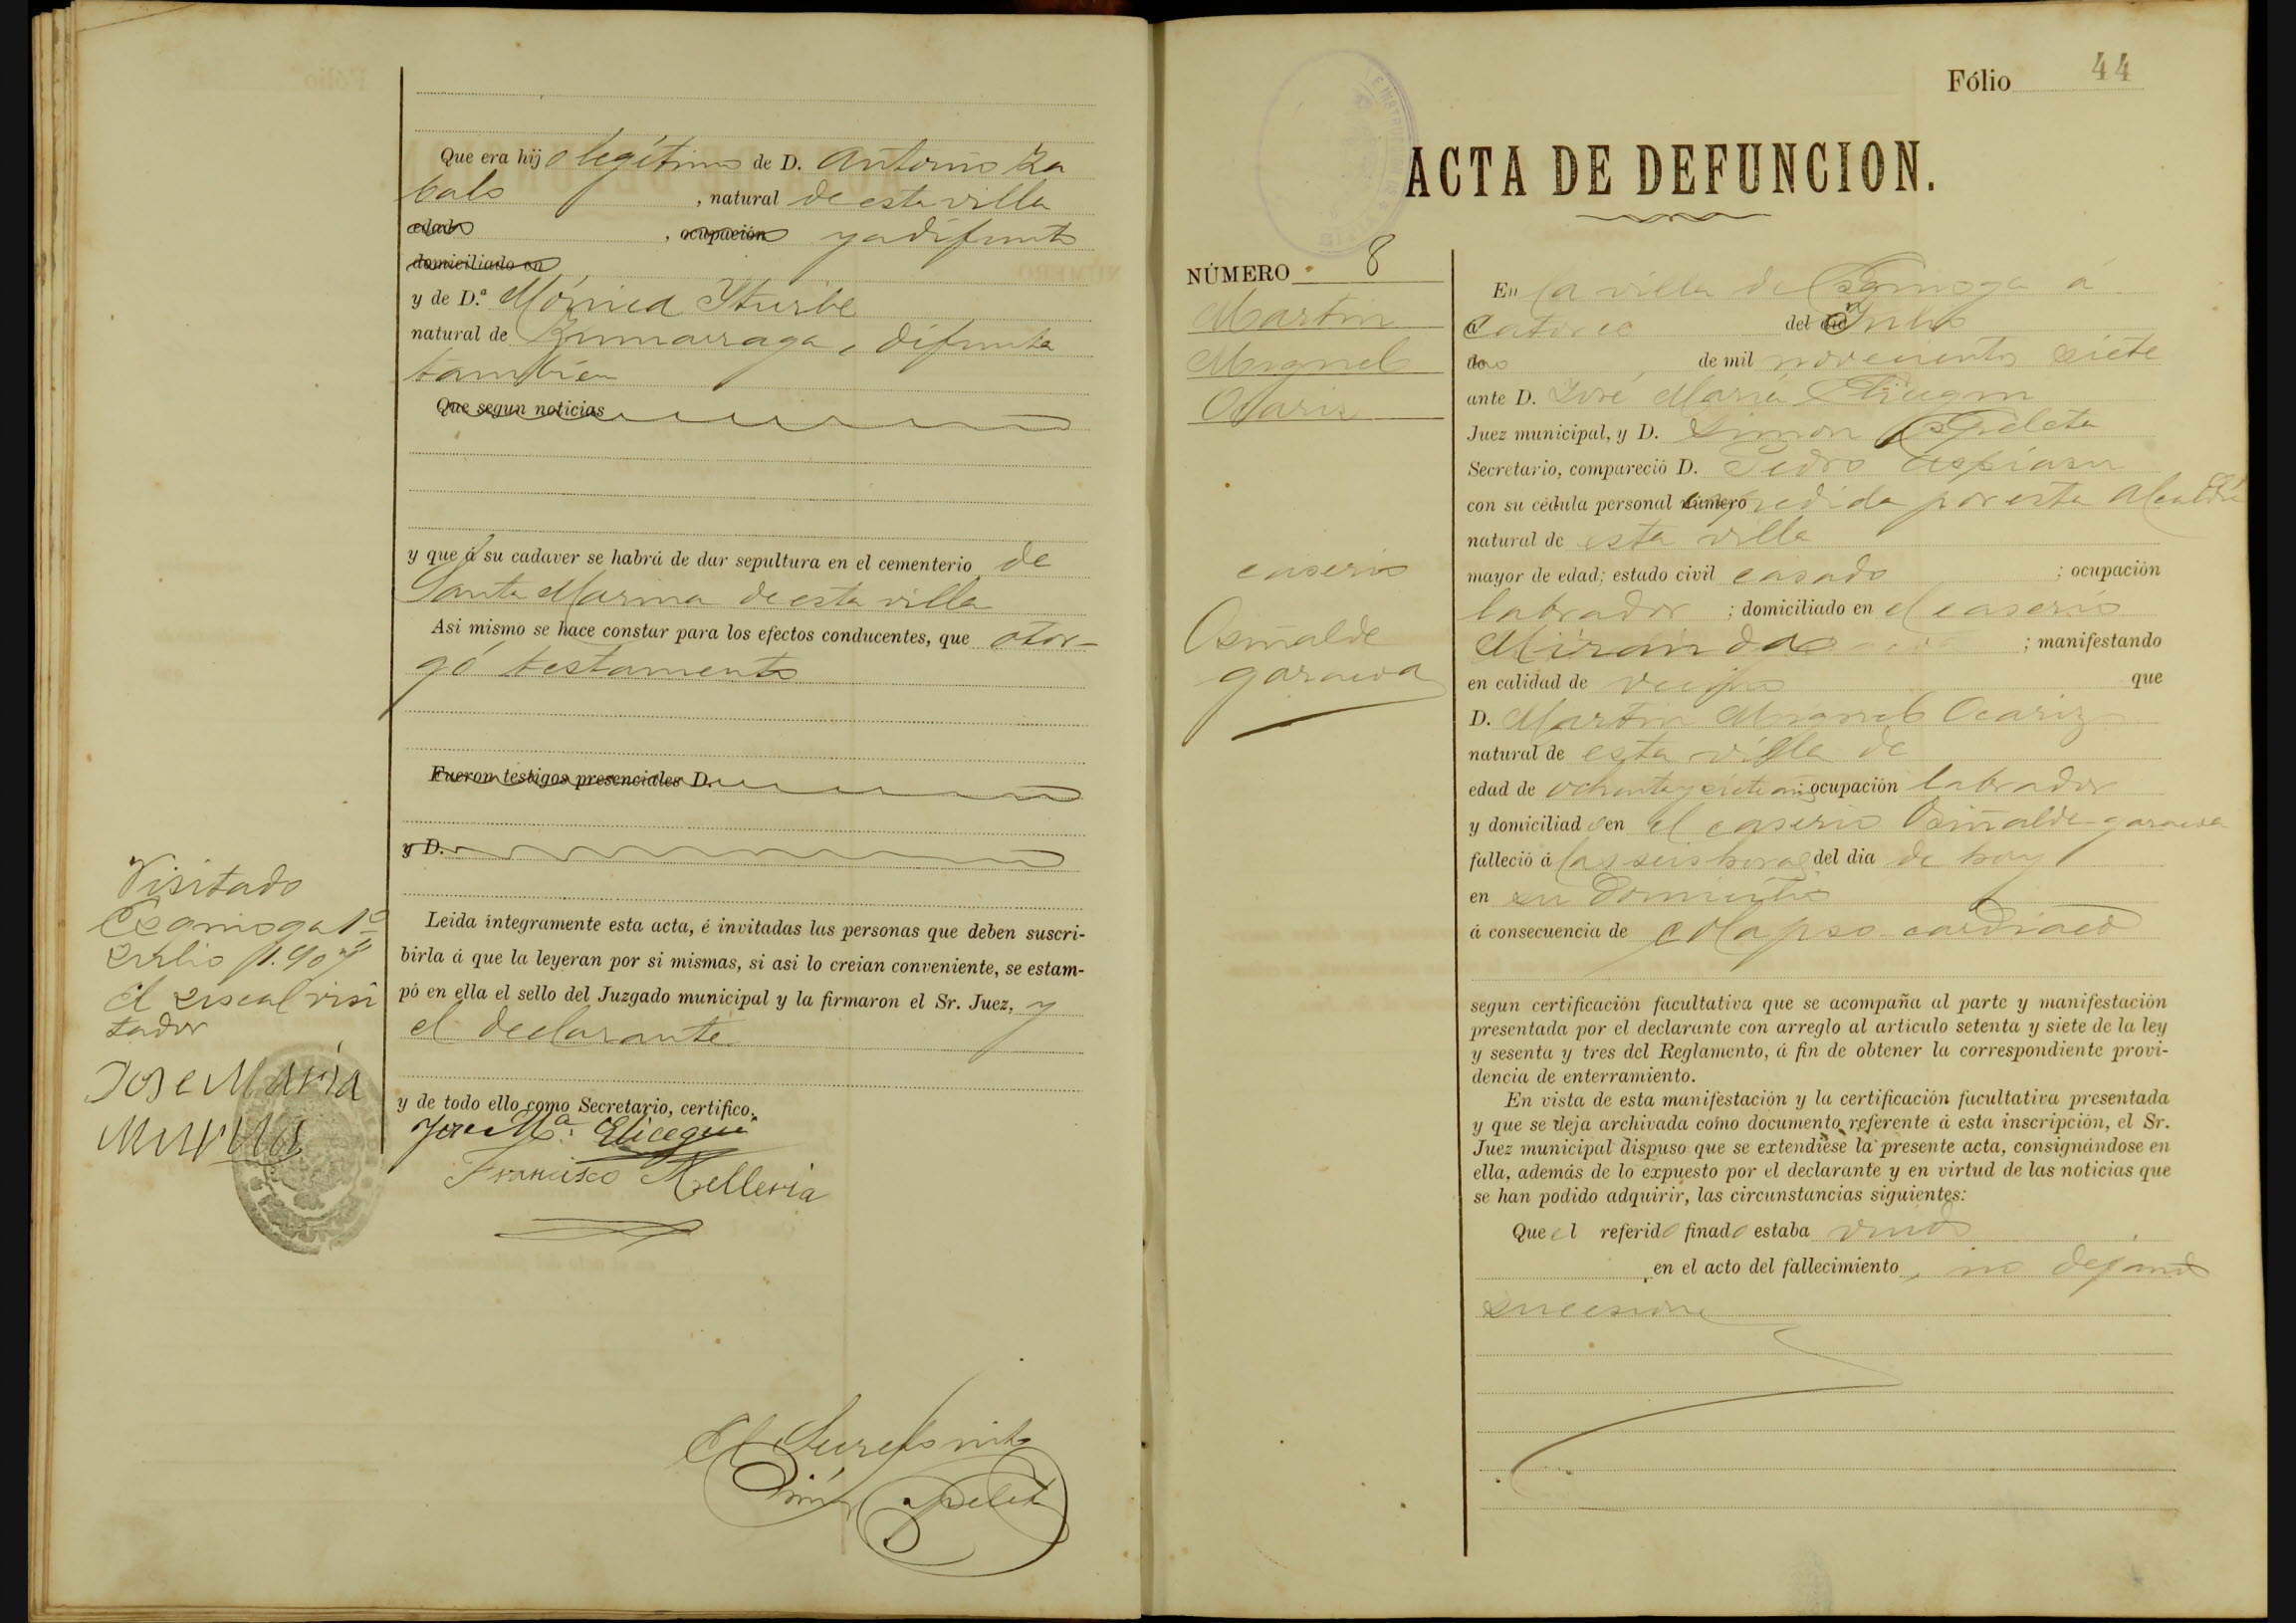 Que era hijo legítimo de D. Antonio Za
balo, natural de esta villa
edad, ocupación ya difunto
domiciliado en
y de D.ª Mónica Yturbe
natural de Zumarraga, difunta
también
Que segun noticias
y que á su cadaver se habrá de dar sepultura en el cementerio de
Santa Marina de esta villa
Asi mismo se hace constar para los efectos conducentes, que otor-
gó testamento
Fueron testigos presenciales D.
y D.
Leida íntegramente esta acta, é invitadas las personas que deben suscri-
birla á que la leyeran por si mismas, si asi lo creian conveniente, se estam-
pó en ella el sello del Juzgado municipal y la firmaron el Sr. Juez, y
el declarante
y de todo ello como Secretario, certifico.
Jose M.ª Elicegui
Francisco
El Secretario
Simón Ezpeleta
Visitado
1º
Julio 1.907
El Fiscal visi
tador
Jose Maria
Murua
Fólio 44
ACTA DE DEFUNCION.
NÚMERO 8
Martin
Miguel
Ocariz
caserio
Osiñalde
garaicoa
En la villa de á
catorce del dia Julio
de mil novecientos siete
ante D. José María Elicegui
Juez municipal, y D. Simon Ezpeleta
Secretario, compareció D. Pedro Aspiazu
con su cédula personal número expedida por esta Alcaldía
natural de esta villa
mayor de edad; estado civil casado; ocupación
labrador; domiciliado en el caserio
Miranda; manifestando
en calidad de vecino que
D. Martin Miguel Ocariz
natural de esta villa de
edad de ochenta y siete años; ocupación labrador
y domiciliado en el caserio Osiñalde-garaicoa
falleció á las seis horas del dia de hoy
en su domicilio
á consecuencia de colapso cardiaco
segun certificación facultativa que se acompaña al parte y manifestación
presentada por el declarante con arreglo al artículo setenta y siete de la ley
y sesenta y tres del Reglamento, á fin de obtener la correspondiente provi-
dencia de enterramiento.
En vista de esta manifestación y la certificación facultativa presentada
y que se deja archivada como documento referente á esta inscripción, el Sr.
Juez municipal dispuso que se extendiese la presente acta, consignándose en
ella, además de lo expuesto por el declarante y en virtud de las noticias que
se han podido adquirir, las circunstancias siguientes:
Que el referido finado estaba viudo
en el acto del fallecimiento, no dejando
sucesion